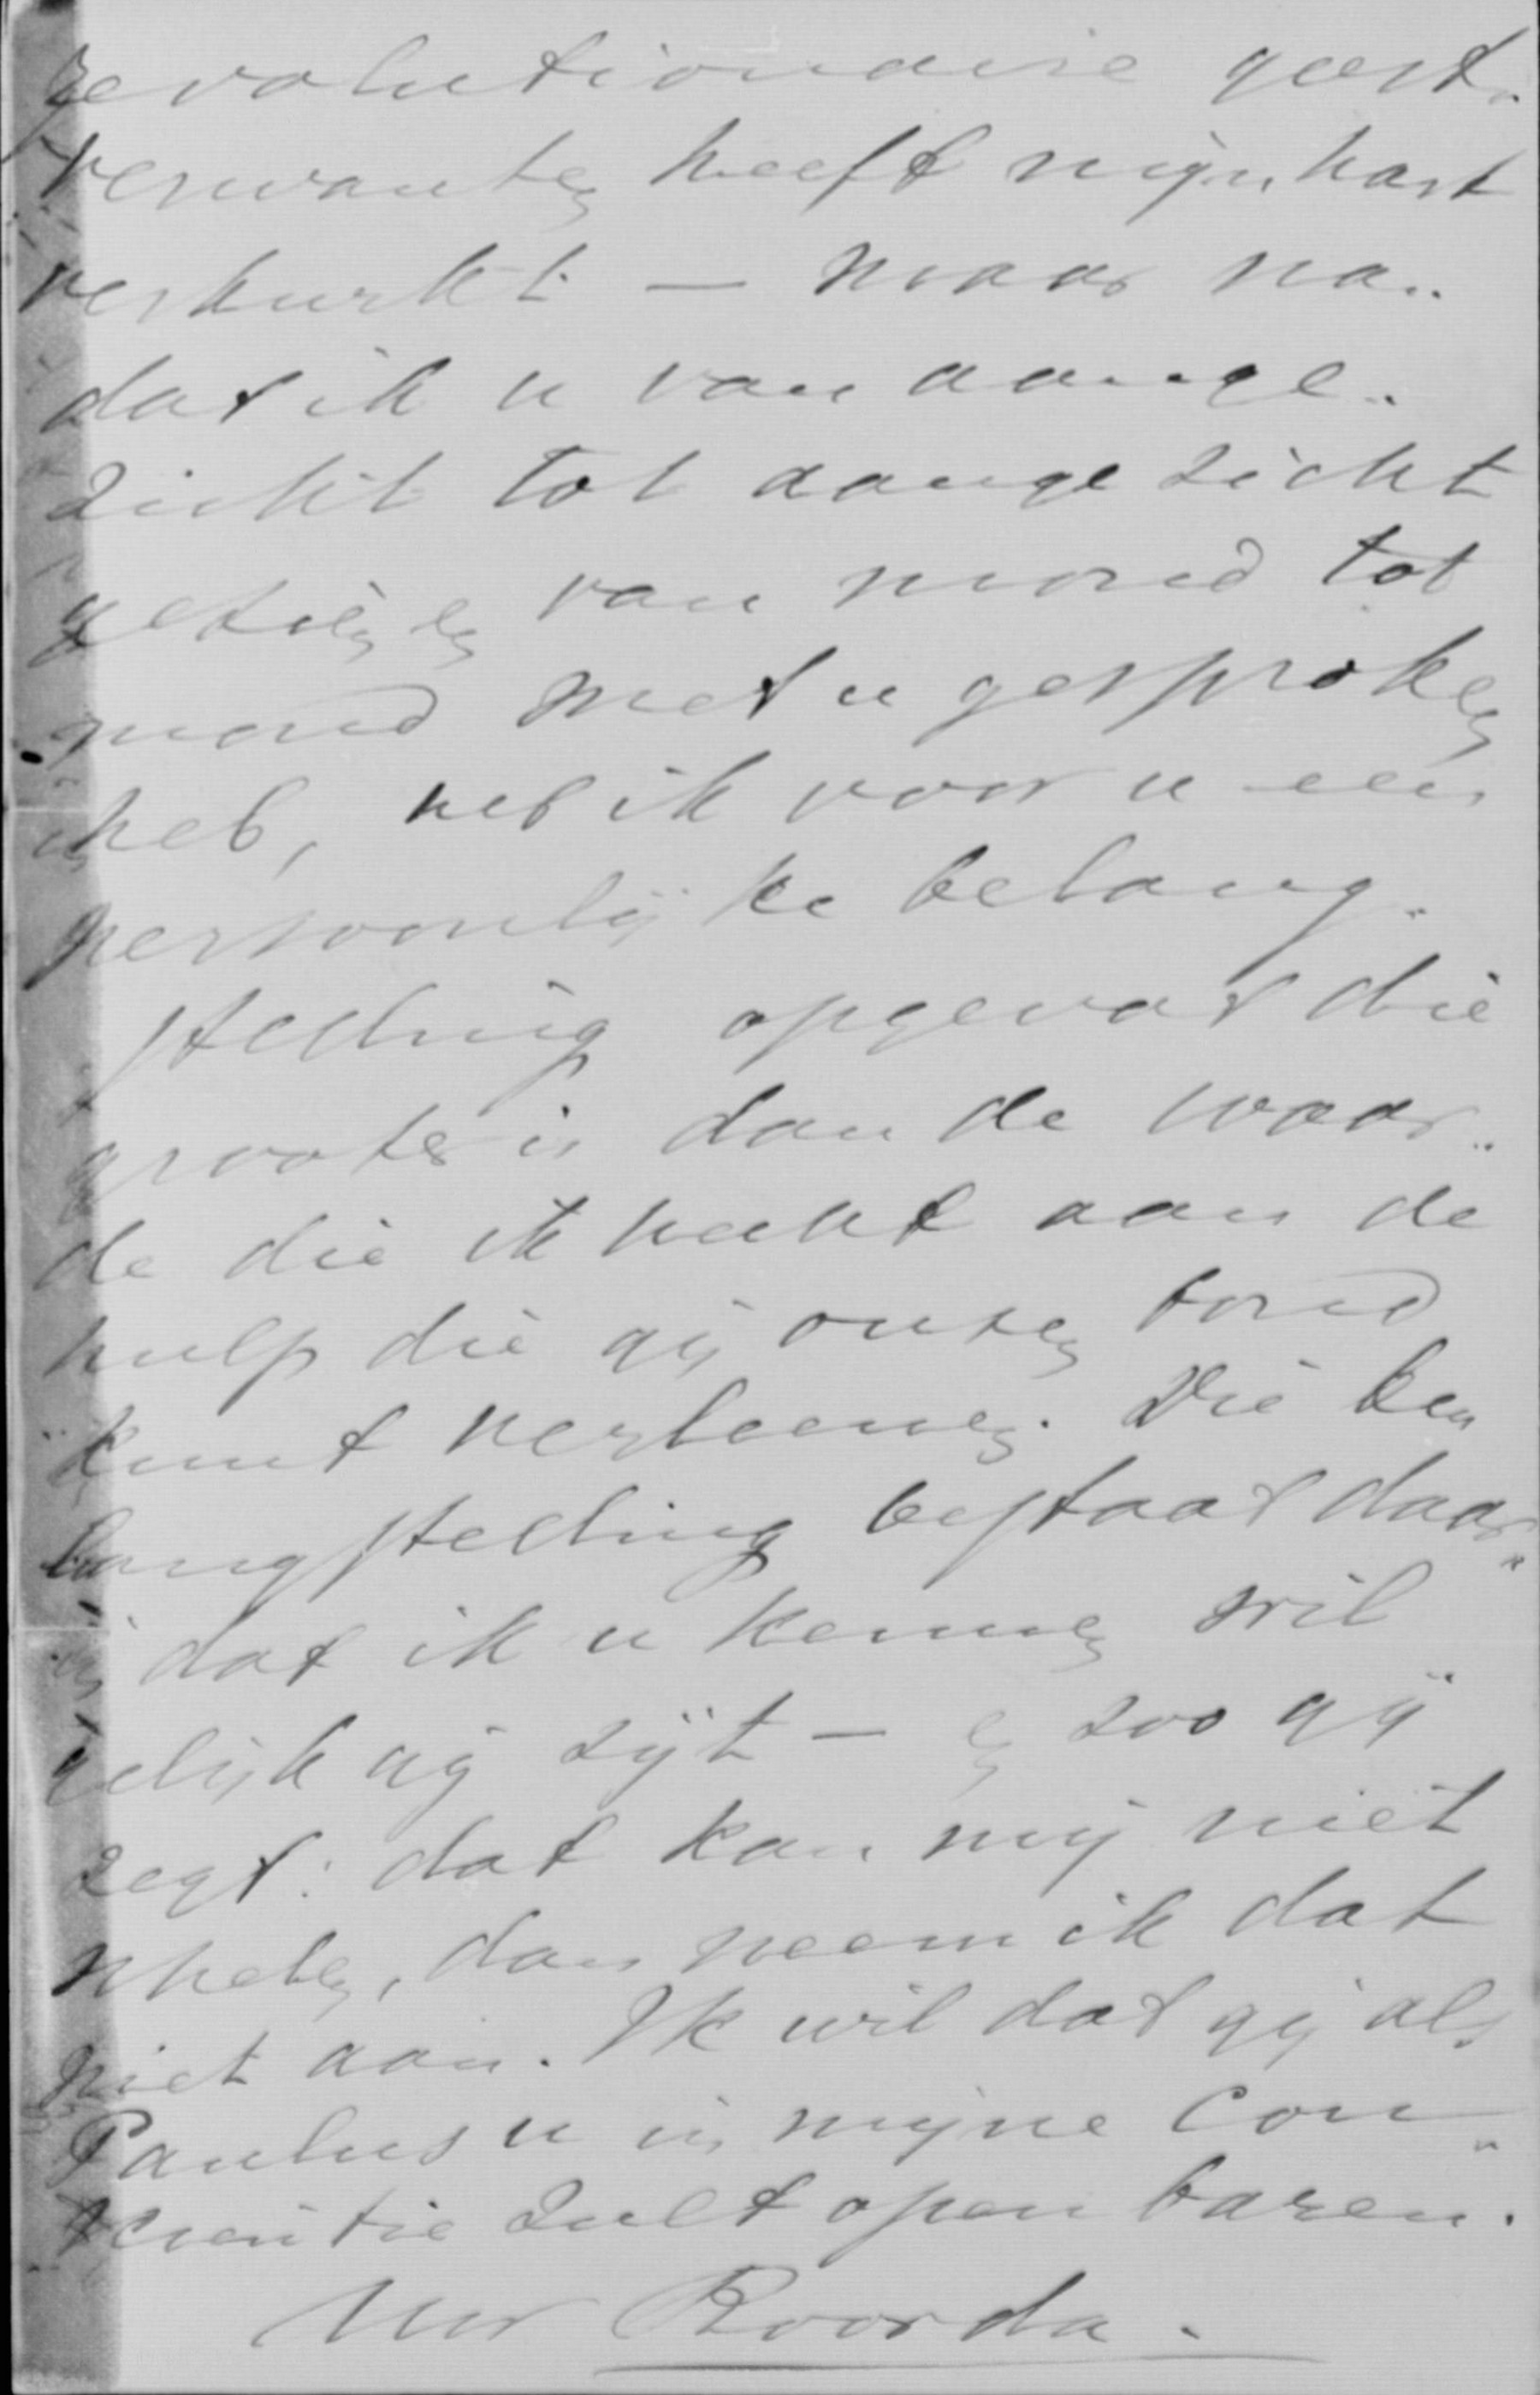 revolutionaire geest-
verwanten heeft mijn hart
verkurkt — maar na-
dat ik u van aange-
zicht tot aangezicht
gezien en van mond tot
mond met u gesproken
heb, heb ik voor u een
persoonlijke belang-
stelling opgevat die
grooter is dan de waar-
de die ik hecht aan de
hulp die gij onzen bond
kunt verleenen. Die be-
langstelling bestaat daar-
in dat ik u kennen wil
gelijk gij zijt — en zoo gij
zegt: dat kan mij niet
schelen, dan neem ik dat
niet aan. Ik wil dat gij als
Paulus u in mijne con-
scientie zult openbaren.
Uw Roorda.